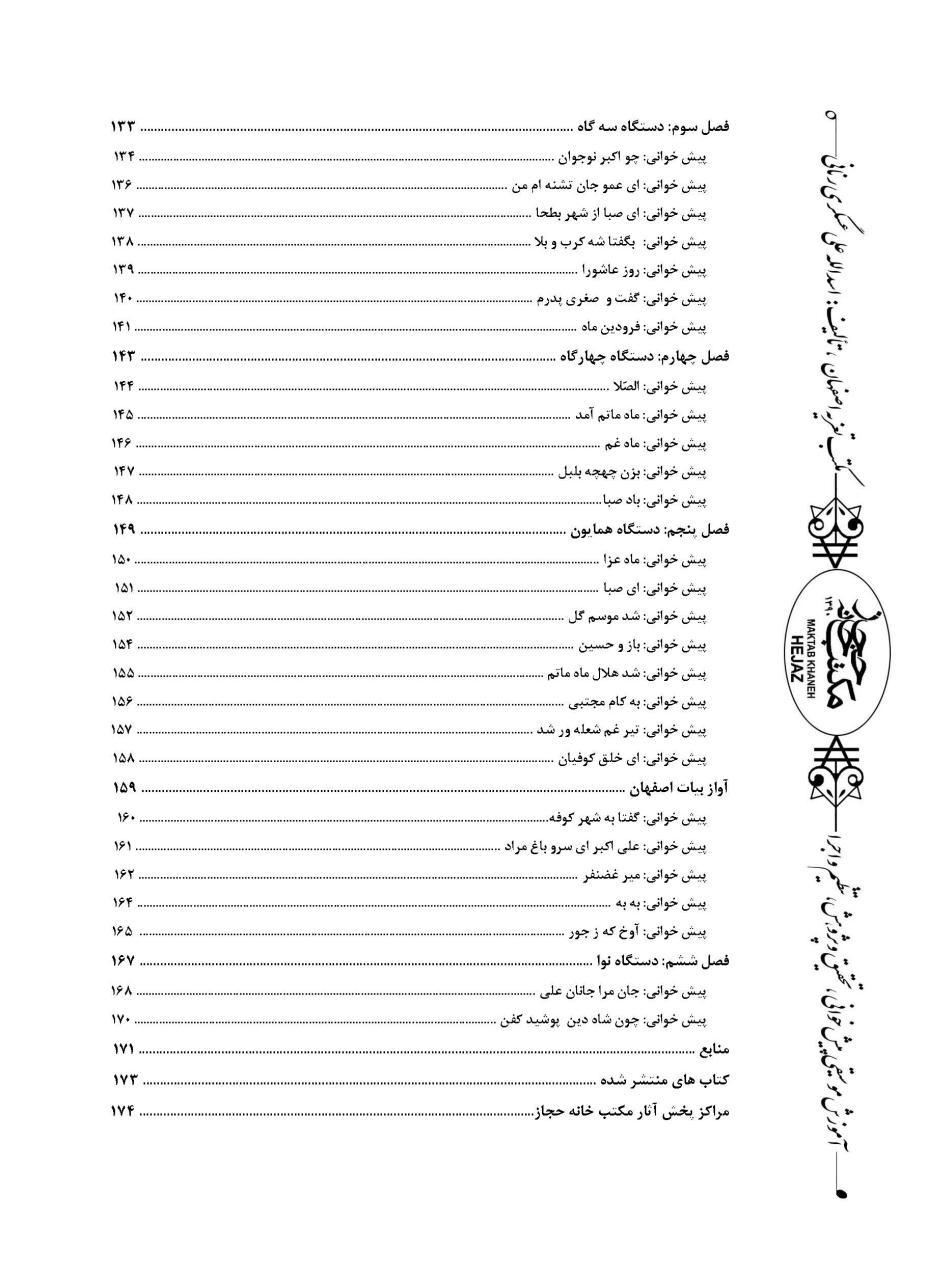 فصل سوم: دستگاه سه گاه ........ ۱۳۳
پیش خوانی: چو اکبر نوجوان ........ ۱۳۴
پیش خوانی: ای عمو جان تشنه ام من ........ ۱۳۶
پیش خوانی: ای صبا از شهر بطحا ........ ۱۳۷
پیش خوانی: بگفتا شه کرب و بلا ........ ۱۳۸
پیش خوانی: روز عاشورا ........ ۱۳۹
پیش خوانی: گفت و صغری پدرم ........ ۱۴۰
پیش خوانی: فرودین ماه ........ ۱۴۱
فصل چهارم: دستگاه چهارگاه ........ ۱۴۳
پیش خوانی: الصّلا ........ ۱۴۴
پیش خوانی: ماه ماتم آمد ........ ۱۴۵
پیش خوانی: ماه غم ........ ۱۴۶
پیش خوانی: بزن چهچه بلبل ........ ۱۴۷
پیش خوانی: باد صبا ........ ۱۴۸
فصل پنجم: دستگاه همایون ........ ۱۴۹
پیش خوانی: ماه عزا ........ ۱۵۰
پیش خوانی: ای صبا ........ ۱۵۱
پیش خوانی: شد موسم گل ........ ۱۵۲
پیش خوانی: باز و حسین ........ ۱۵۴
پیش خوانی: شد هلال ماه ماتم ........ ۱۵۵
پیش خوانی: به کام مجتبی ........ ۱۵۶
پیش خوانی: تیر غم شعله ور شد ........ ۱۵۷
پیش خوانی: ای خلق کوفیان ........ ۱۵۸
آواز بیات اصفهان ........ ۱۵۹
پیش خوانی: گفتا به شهر کوفه ........ ۱۶۰
پیش خوانی: علی اکبر ای سرو باغ مراد ........ ۱۶۱
پیش خوانی: میر غضنفر ........ ۱۶۲
پیش خوانی: به به ........ ۱۶۴
پیش خوانی: آوخ که ز جور ........ ۱۶۵
فصل ششم: دستگاه نوا ........ ۱۶۷
پیش خوانی: جان مرا جانان علی ........ ۱۶۸
پیش خوانی: چون شاه دین پوشید کفن ........ ۱۷۰
منابع ........ ۱۷۱
کتاب های منتشر شده ........ ۱۷۳
مراکز پخش آثار مکتب خانه حجاز ........ ۱۷۴
مکتب تعزیه اصفهان، تألیف: اسدالله علی عسکری رنانی
مکتب خانه حجاز
۱۳۹۰
MAKTAB KHANEH
HEJAZ
آموزش موسیقی پیش خوانی، تحقیق و پژوهش، تنظیم و اجرا